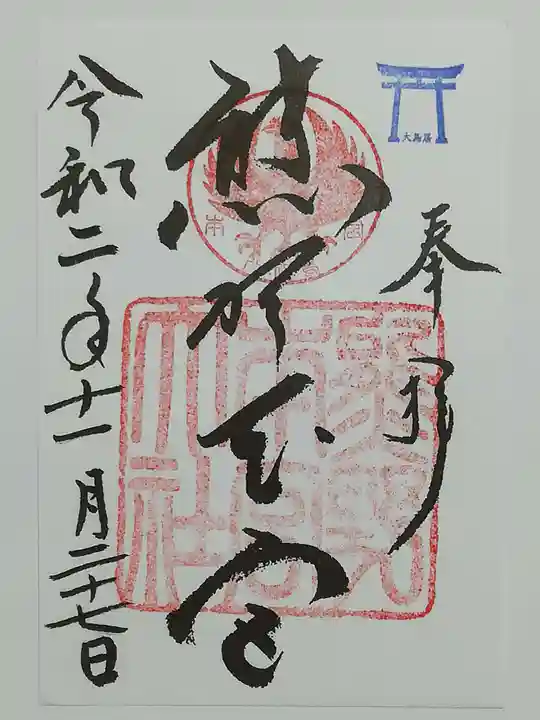 大鳥居
奉拝
熊野本宮
熊野本宮大社
令和二年十一月二十七日